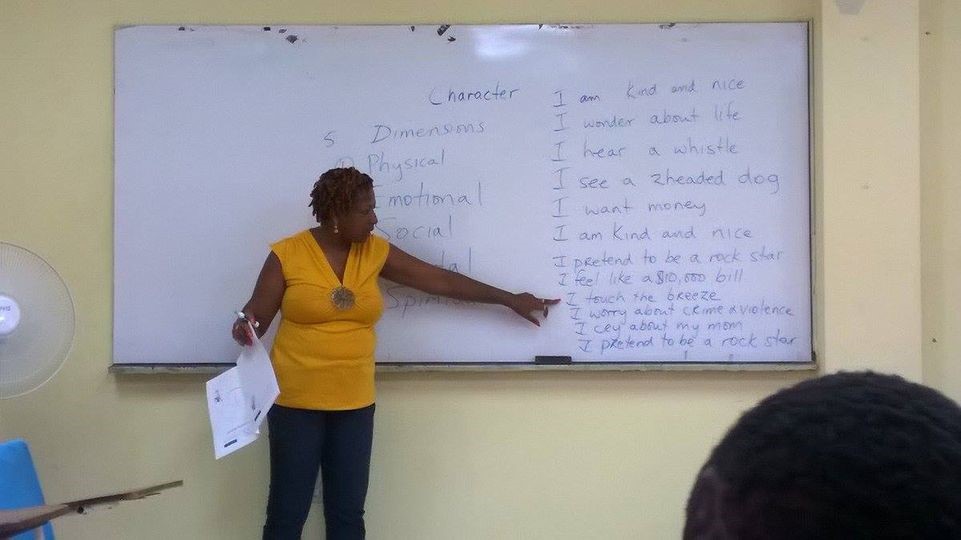 Character
5 Dimensions
Physical
Emotional
Social
Spiritual
I am kind and nice
I wonder about life
I hear a whistle
I see a 2headed dog
I want money
I am kind and nice
I pretend to be a rock star
I feel like a $10,000 bill
I touch the breeze
I worry about crime & violence
I cry about my mom
I pretend to be a rock star